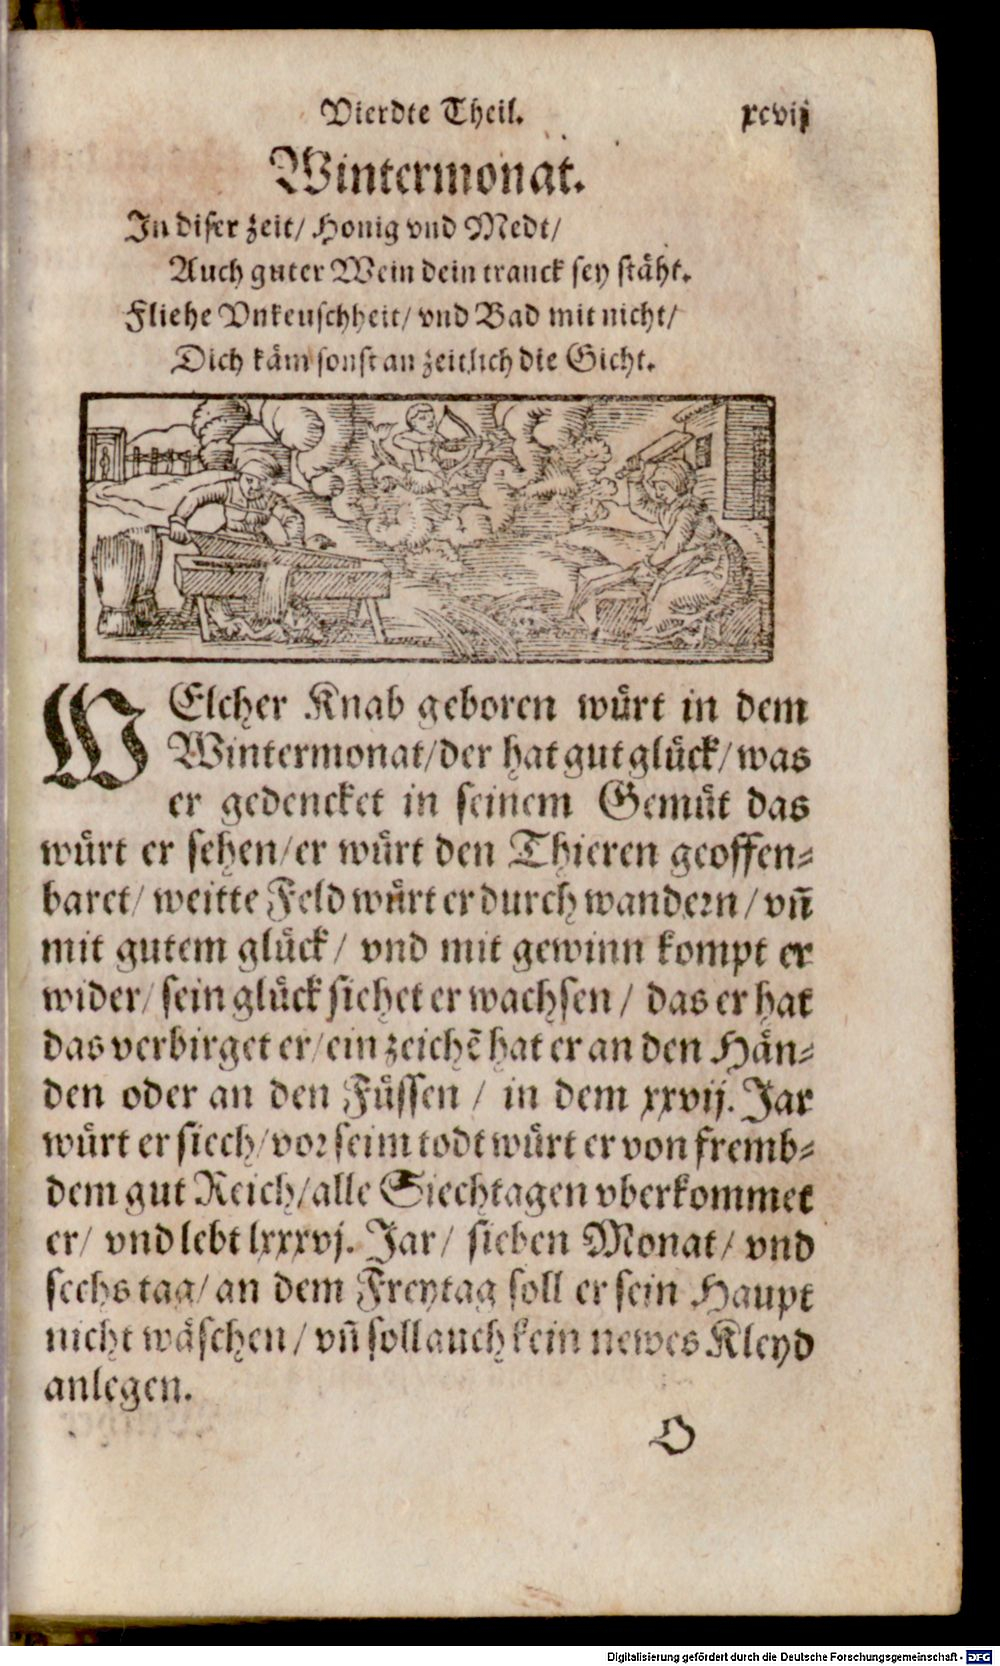 Vierdte Theil. xcvij
Wintermonat.
In diser zeit/ Honig vnd Medt/
Auch guter Wein dein tranck sey stäht.
Fliehe Vnkeuschheit/ vnd Bad mit nicht/
Dich käm sonst an zeitlich die Gicht.
WElcher Knab geboren wuͤrt in dem
Wintermonat/ der hat gut gluͤck/ was
er gedencket in seinem Gemuͤt das
wuͤrt er sehen/ er wuͤrt den Thieren geoffen-
baret/ weitte Feld wuͤrt er durch wandern/ vñ
mit gutem gluͤck/ vnd mit gewinn kompt er
wider/ sein gluͤck sichet er wachsen/ das er hat
das verbirget er/ ein zeichẽ hat er an den Hän-
den oder an den Fuͤssen/ in dem xxvij. Jar
wuͤrt er siech/ vor seim todt wuͤrt er von fremb-
dem gut Reich/ alle Siechtagen vberkommet
er/ vnd lebt lxxxvj. Jar/ sieben Monat/ vnd
sechs tag/ an dem Freytag soll er sein Haupt
nicht wäschen/ vñ soll auch kein newes Kleyd
anlegen.
O
Digitalisierung gefördert durch die Deutsche Forschungsgemeinschaft - DFG